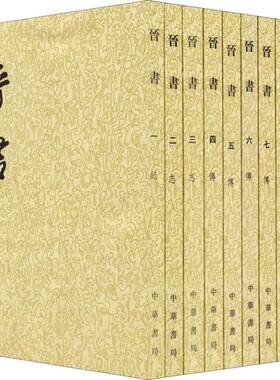 晉書
晉書 一 紀 中華書局
晉書 二 志 中華書局
晉書 三 志 中華書局
晉書 四 傳 中華書局
晉書 五 傳 中華書局
晉書 六 傳 中華書局
晉書 七 傳 中華書局